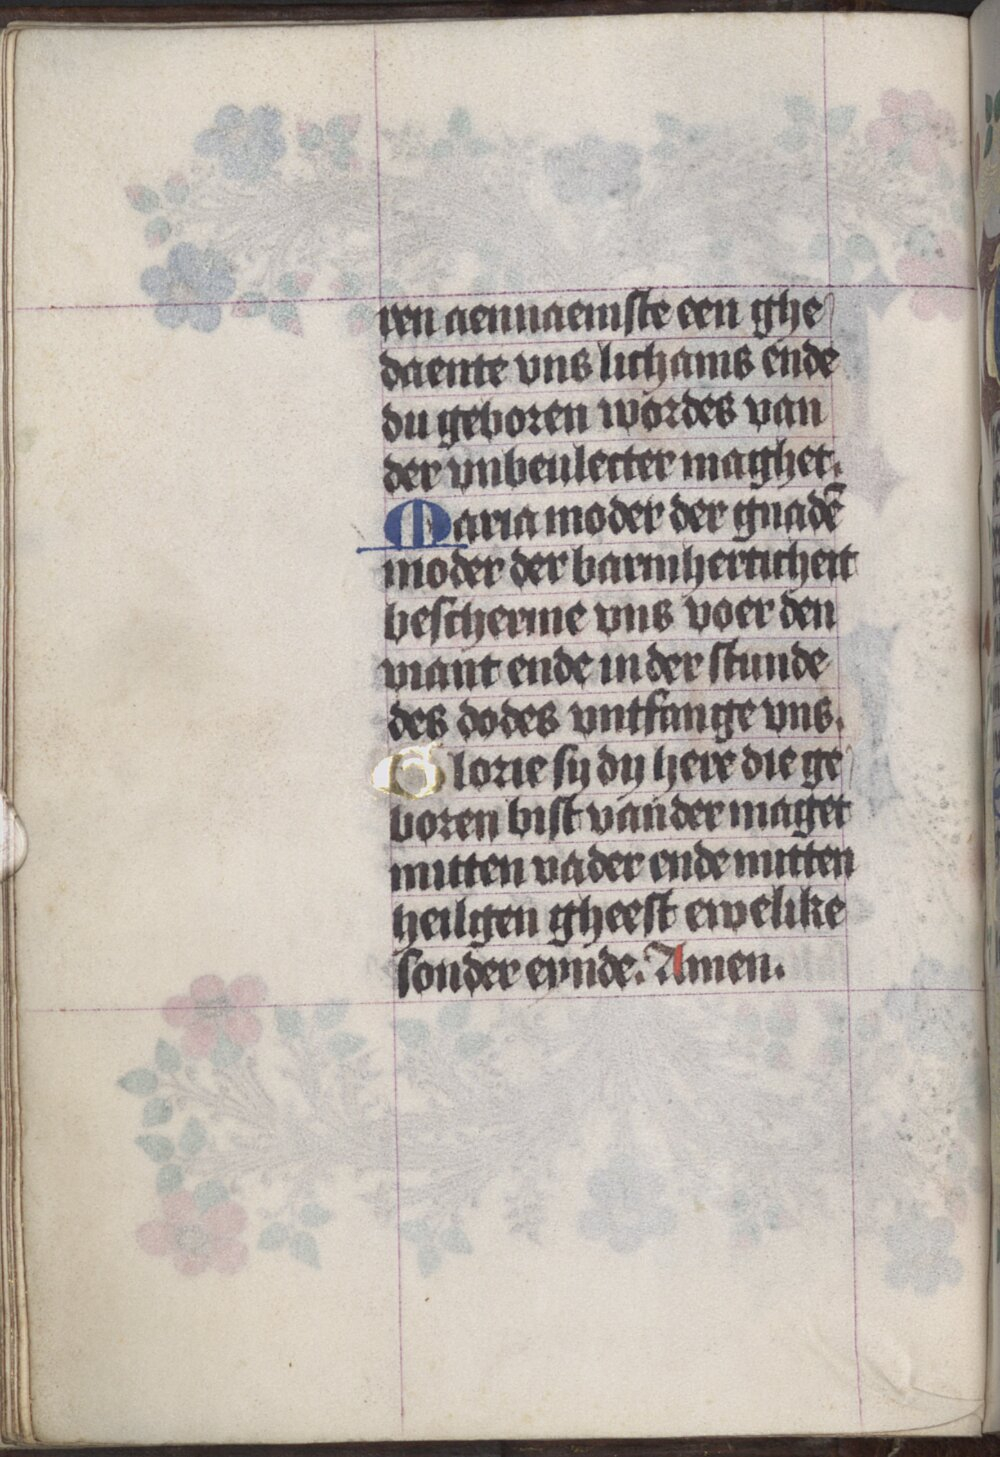 ren aennaemste een ghe
daente vns lichams ende
du geboren wordes van
der vnbeulecter maghet.
Maria moder der gnadē
moder der barmherticheit
bescherme vns voer den
viant ende in der stunde
des dodes vntfange vns.
Glorie sy dy here die ge
boren bist van der maget
mitten vader ende mitten
heilgen gheest ewelike
sonder eynde. Amen.